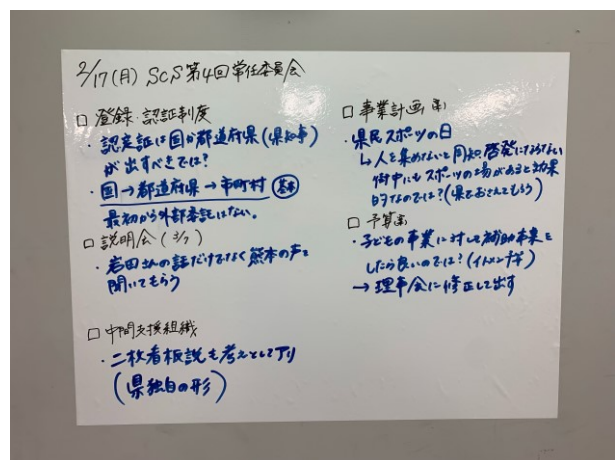 2/17(月) SCS第4回常任委員会
□ 登録・認証制度
・認定証は国か都道府県(県知事)
が出すべきでは?
・国→都道府県→市町村 基本
最初から外部委託はない。
□ 説明会(3/7)
・岩田さんの話だけでなく熊本の声を
聞いてもらう
□ 中間支援組織
・二枚看板説も考えとしてアリ
(県独自の形)
□ 事業計画案
・県民スポーツの日
↳人を集めないと周知啓発にならない
街中にもスポーツの場があると効果
的なのでは?(県でおさえてもらう)
□ 予算案
・子どもの事業に対して補助事業を
したら良いのでは?
→ 理事会に修正して出す